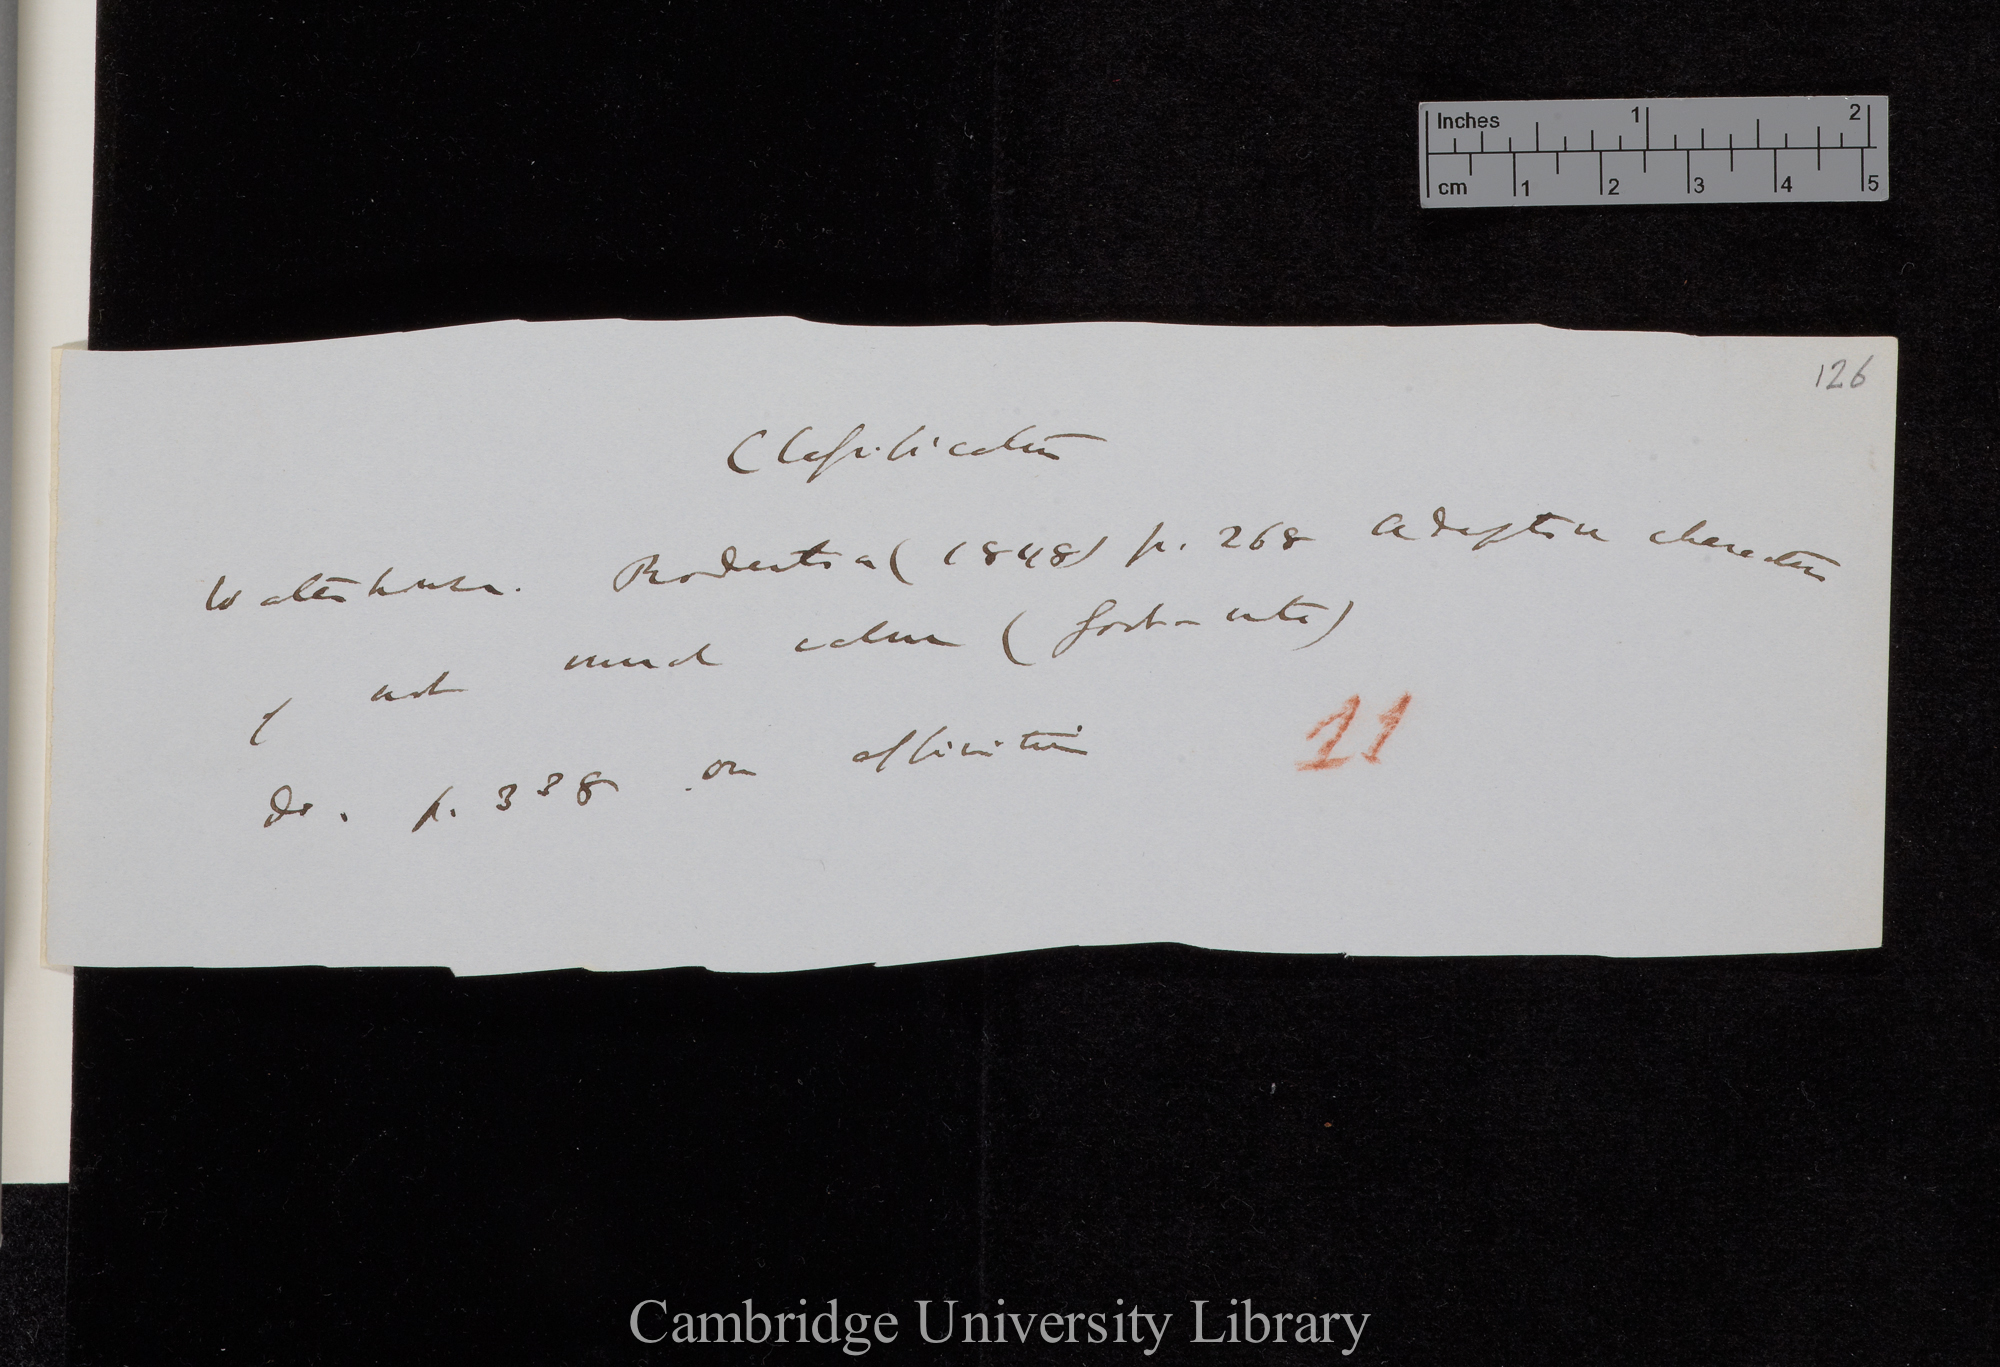 Inches 1 2
cm 1 2 3 4 5
126
Classification
Waterhouse. Rodentia (1848) p. 268 Adaptive characters
of not much value (foot-note)
do. p. 338 on affinities
21
Cambridge University Library